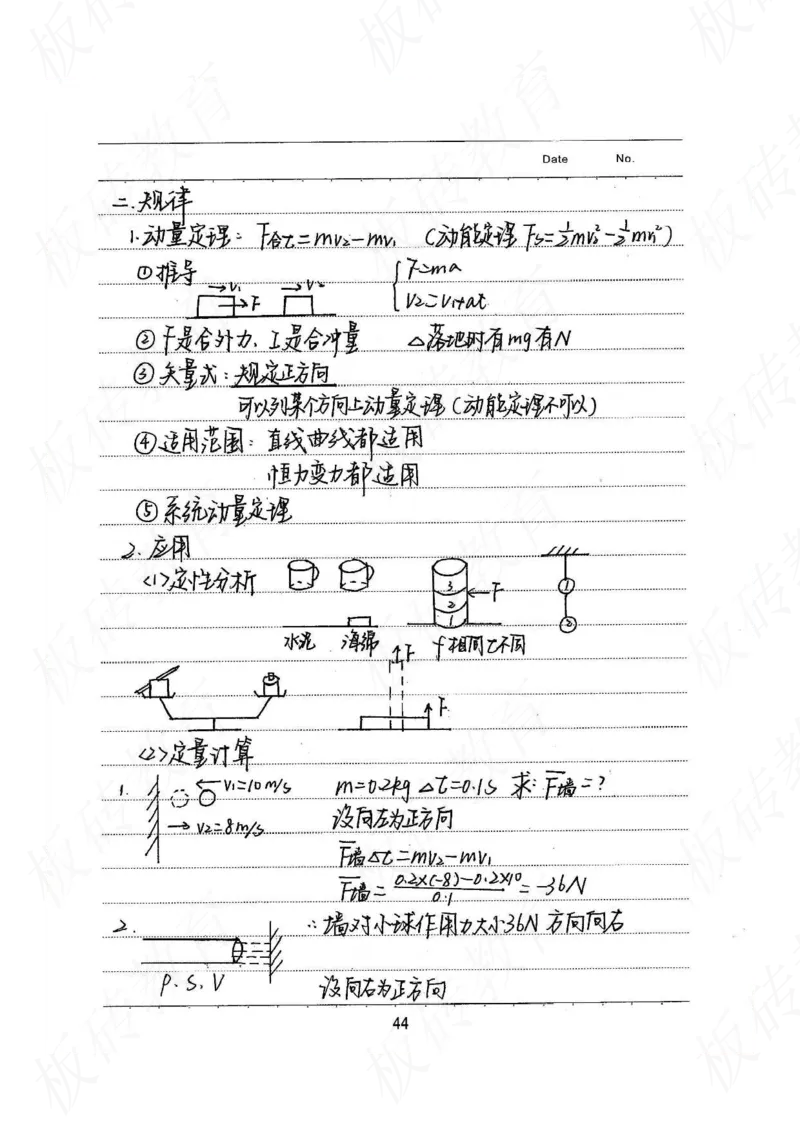 Date No.
二.规律
1.动量定理: F合t=mv₂-mv₁ (动能定理 Fs=½mv₂²-½mv₁²)
①推导 v₁ F v₂ {F=ma
v₂=v₁+at
②F是合外力、I是合冲量 △落地时有mg有N
③矢量式:规定正方向
可以列某个方向上动量定理(动能定理不可以)
④适用范围: 直线曲线都适用
恒力变力都适用
⑤系统动量定理
2.应用
<1>定性分析 3 2 1 F ① ②
水泥 海绵 f相同t不同
F F
<2>定量计算
1. v₁=10m/s m=0.2kg △t=0.1s 求:F̅墙=?
v₂=8m/s 设向左为正方向
F̅墙△t=mv₂-mv₁
F̅墙=0.2×(-8)-0.2×10/0.1=-36N
2. ∴墙对小球作用力大小36N 方向向右
ρ.S.V 设向右为正方向
44
板砖教育